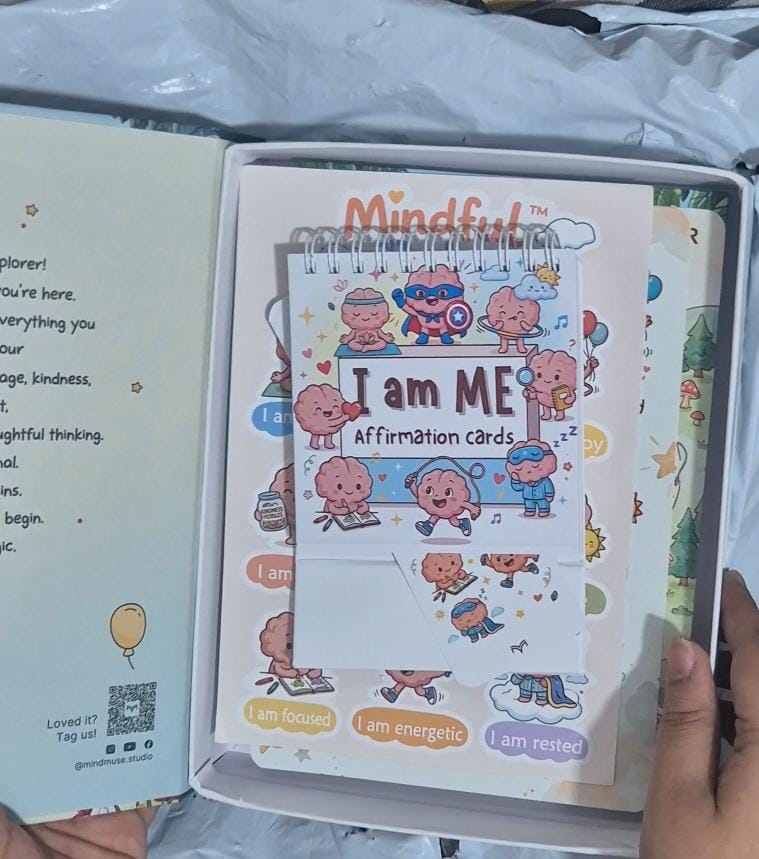 plorer!
ou're here.
verything you
our
age, kindness,
t,
ughtful thinking.
nal.
ins.
begin.
ic.
Loved it?
Tag us!
@mindmuse.studio
Mindful™
R
I am ME
Affirmation cards
z z Z
I am
py
KINDNESS
I am
I am focused
I am energetic
I am rested